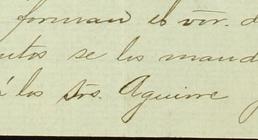 forman el vor. d
utos se los mand
á los Srs. Aguirre